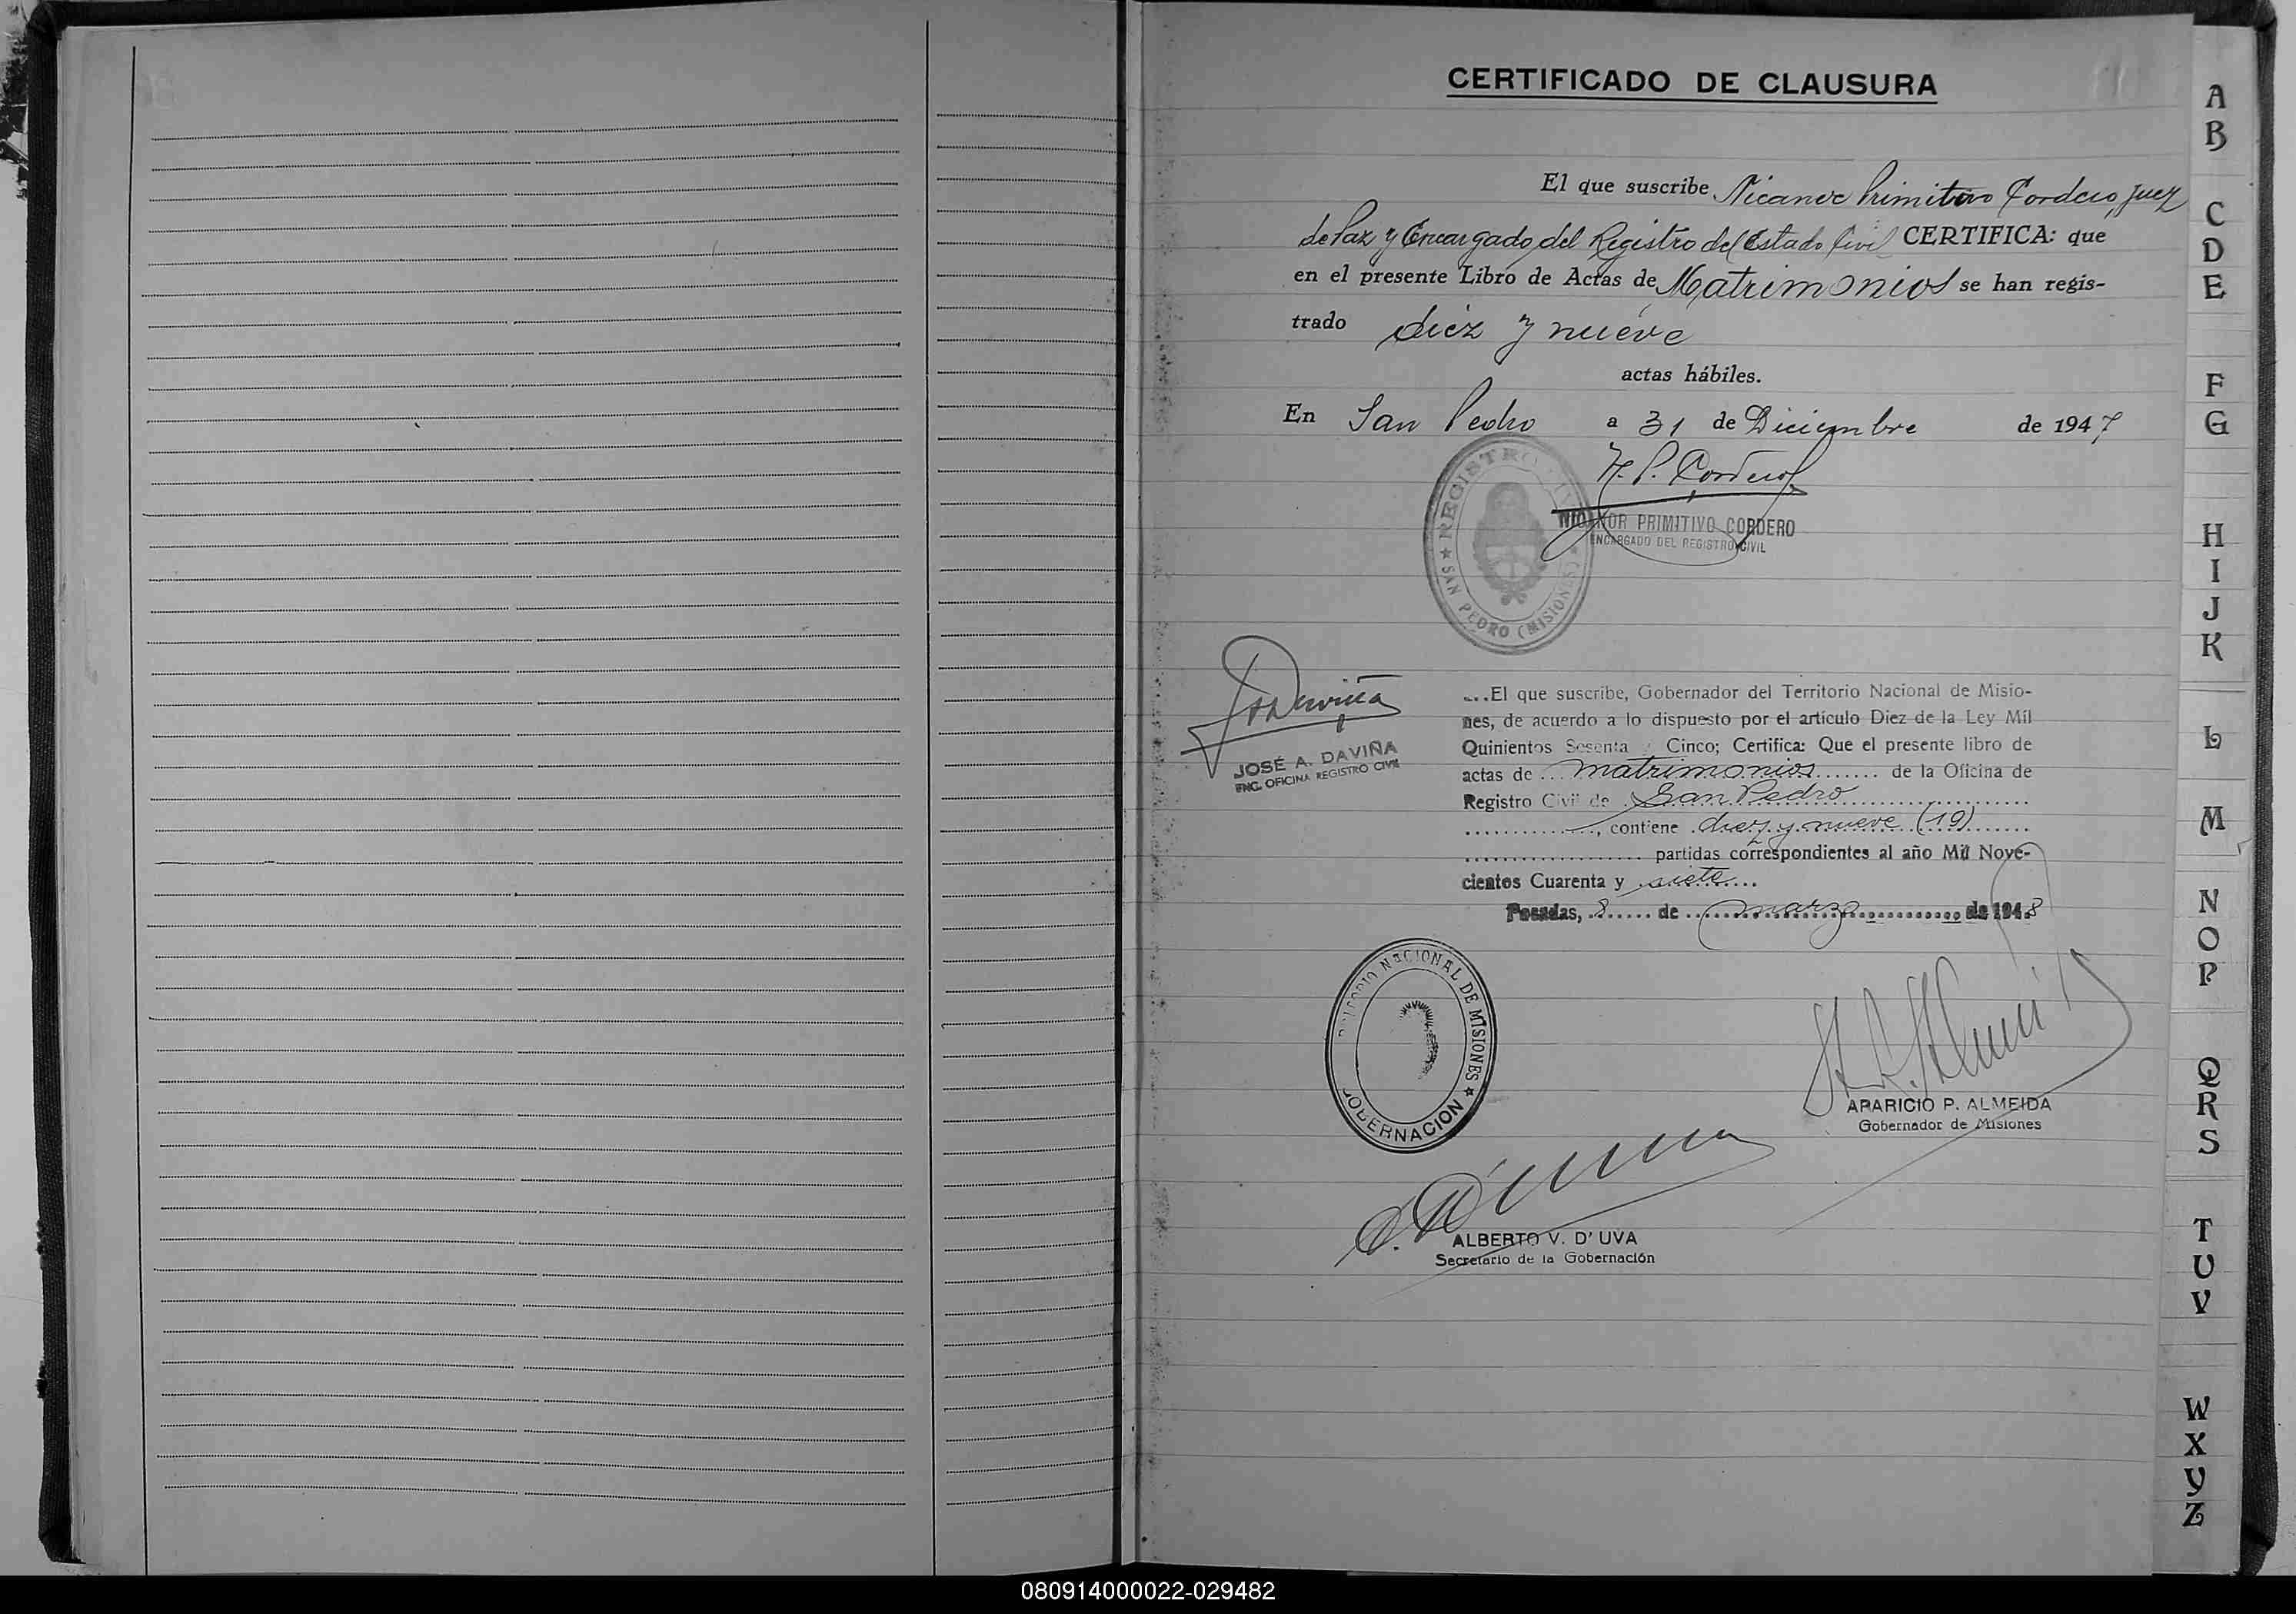 CERTIFICADO DE CLAUSURA
El que suscribe Nicanor Primitivo Cordero, Juez
de Paz y Encargado del Registro del Estado Civil CERTIFICA: que
en el presente Libro de Actas de Matrimonios se han regis-
trado diez y nueve
actas hábiles.
En San Pedro a 31 de Diciembre de 1947
N. P. Cordero
REGISTRO CIVIL
★ SAN PEDRO (MISIONES) ★
NICANOR PRIMITIVO CORDERO
ENCARGADO DEL REGISTRO CIVIL
J A Daviña
JOSÉ A. DAVIÑA
ENC. OFICINA REGISTRO CIVIL
...El que suscribe, Gobernador del Territorio Nacional de Misio-
nes, de acuerdo a lo dispuesto por el artículo Diez de la Ley Mil
Quinientos Sesenta y Cinco; Certifica: Que el presente libro de
actas de ... matrimonios ....... de la Oficina de
Registro Civil de San Pedro
............., contiene diez y nueve (19)
................... partidas correspondientes al año Mil Nove-
cientos Cuarenta y siete
Posadas, 8 de marzo de 1948
TERRITORIO NACIONAL DE MISIONES ★
GOBERNACION
APARICIO P. ALMEIDA
Gobernador de Misiones
ALBERTO V. D'UVA
Secretario de la Gobernación
A
B
C
D
E
F
G
H
I
J
K
L
M
N
O
P
Q
R
S
T
U
V
W
X
Y
Z
080914000022-029482